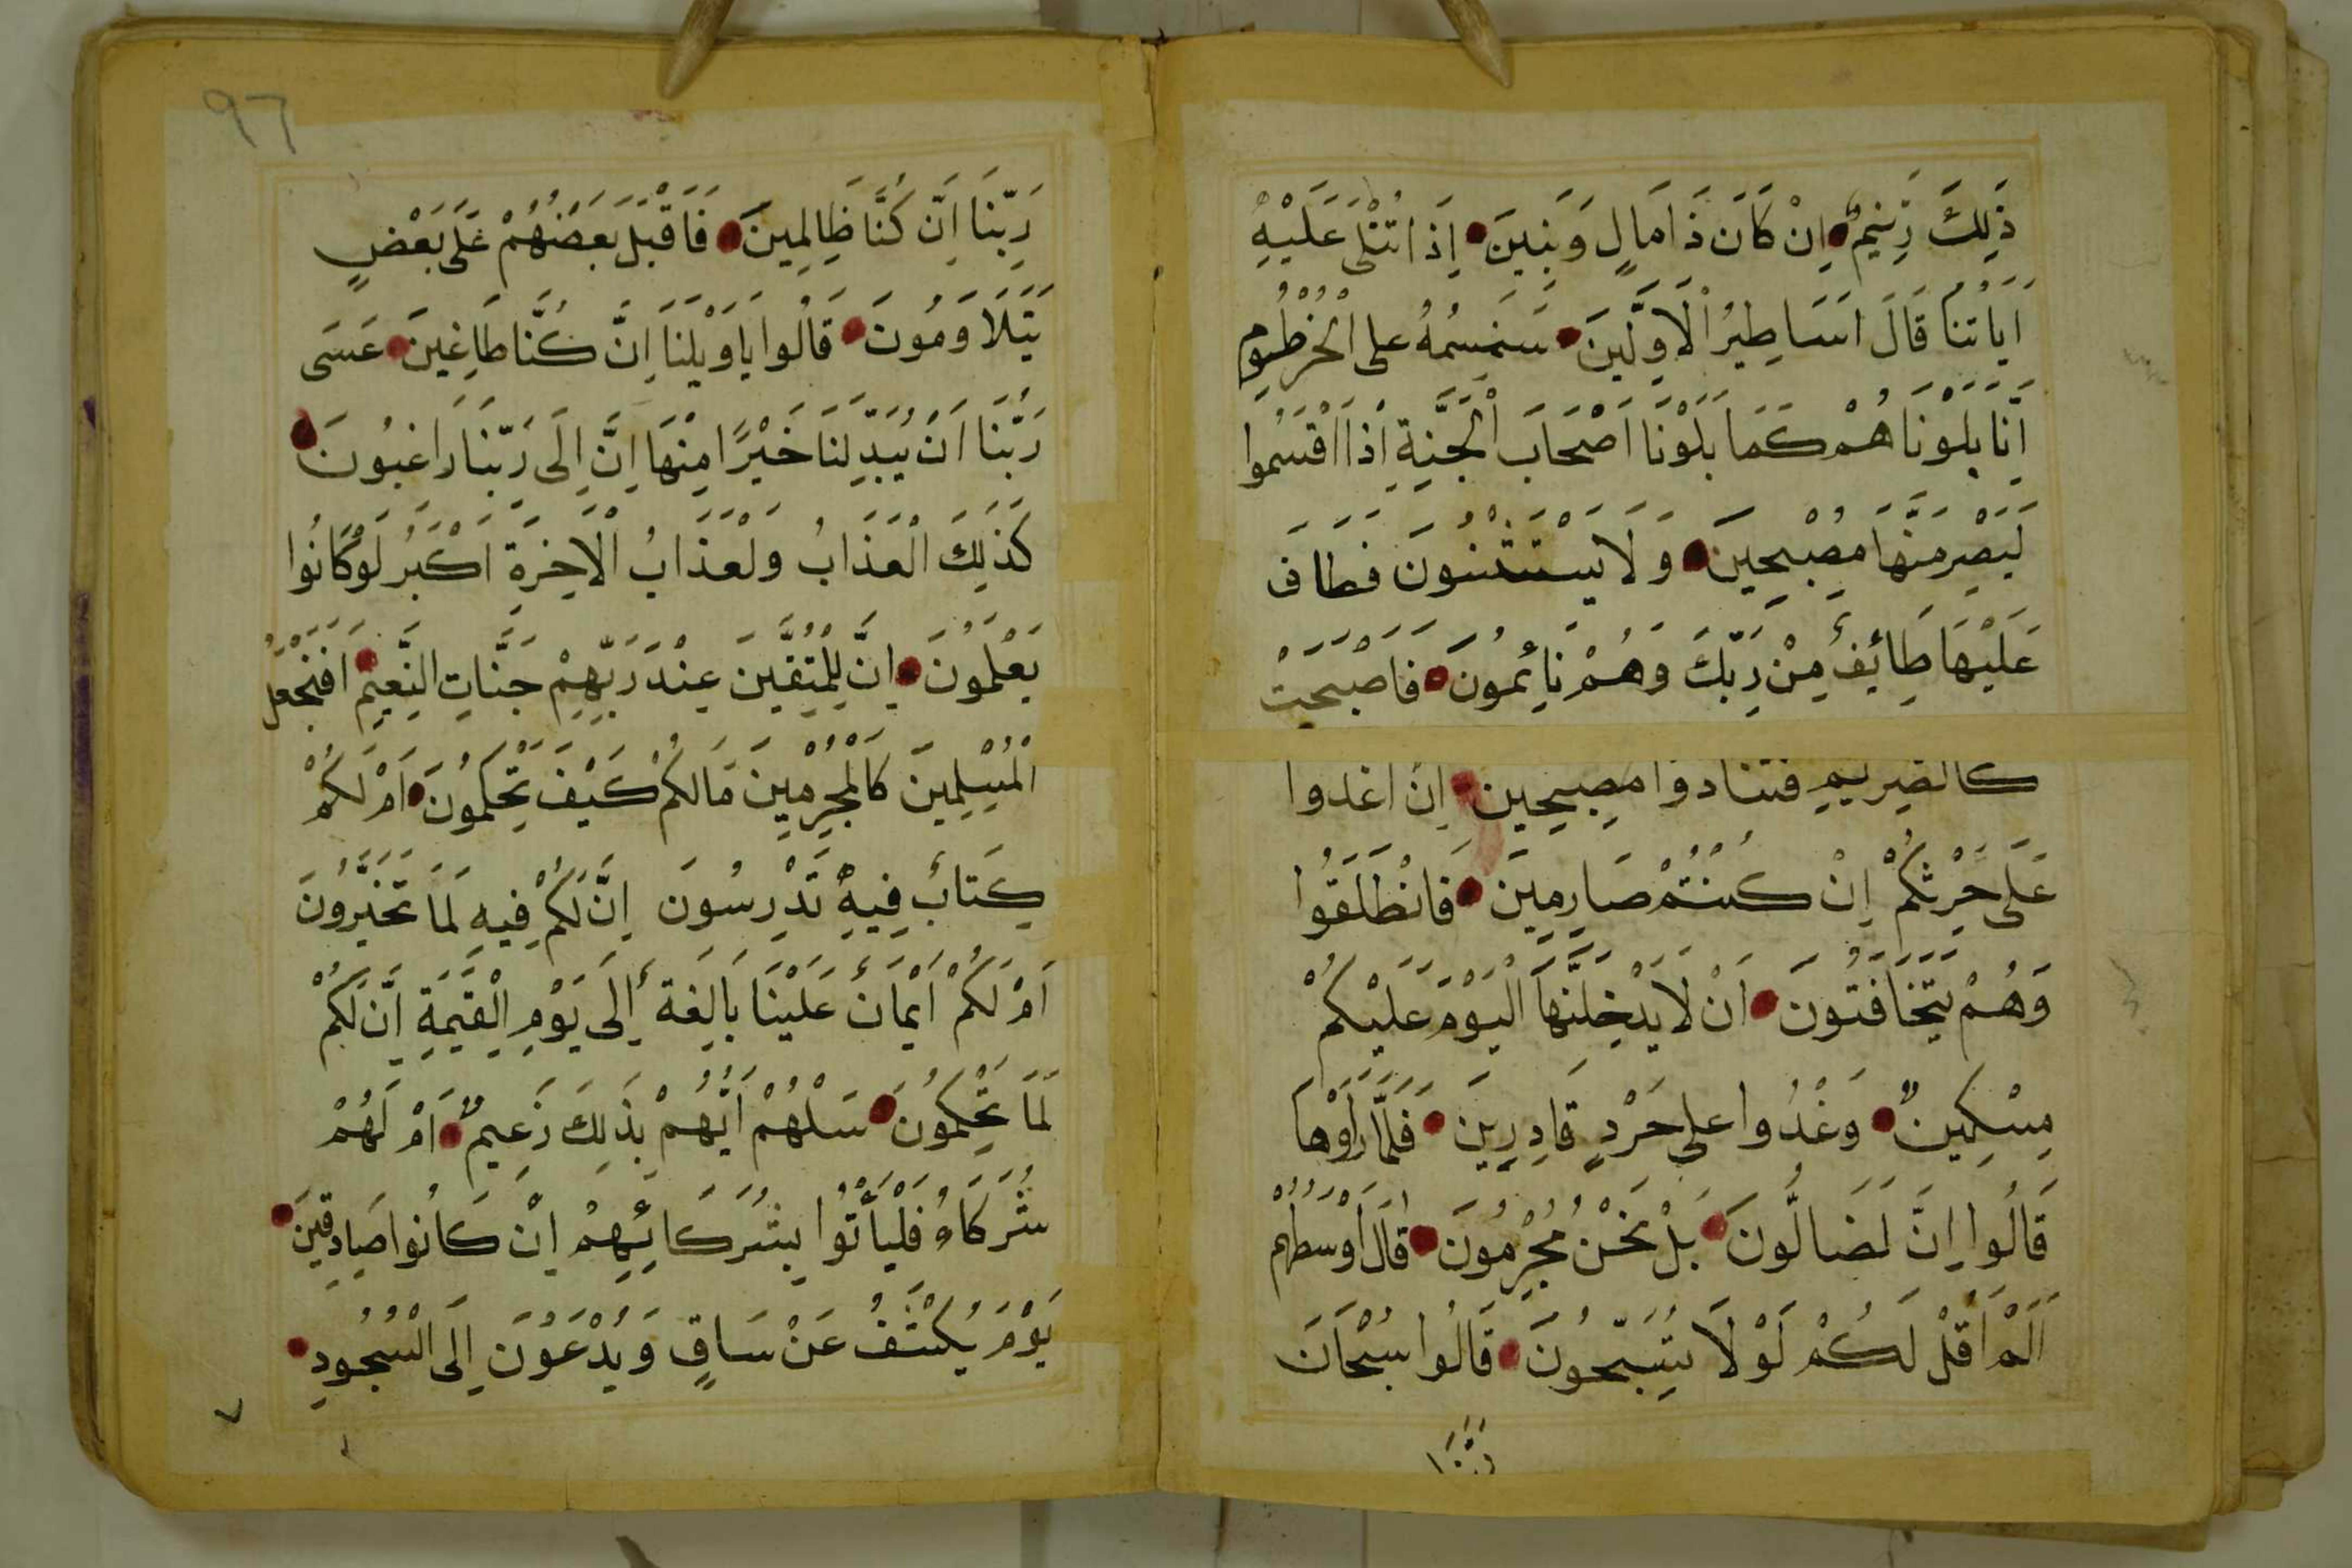 ذَٰلِكَ زَنِيمٌ اِنْ كَانَ ذَا مَالٍ وَبَنِينَ اِذَا تُتْلَى عَلَيْهِ
اَيَاتُنَا قَالَ اَسَاطِيرُ الْاَوَّلِينَ سَنَسِمُهُ عَلَى الْخُرْطُومِ
اِنَّا بَلَوْنَاهُمْ كَمَا بَلَوْنَا اَصْحَابَ الْجَنَّةِ اِذْ اَقْسَمُوا
لَيَصْرِمُنَّهَا مُصْبِحِينَ وَلَا يَسْتَثْنُونَ فَطَافَ
عَلَيْهَا طَائِفٌ مِنْ رَبِّكَ وَهُمْ نَائِمُونَ فَاَصْبَحَتْ
كالصَّرِيمِ فتنادوا مصبحين اِن اغدوا
عَلَى حَرْثِكُمْ اِنْ كُنْتُمْ صَارِمِينَ فَانْطَلَقُوا
وَهُمْ يَتَخَافَتُونَ اَنْ لَا يَدْخُلَنَّهَا الْيَوْمَ عَلَيْكُمْ
مِسْكِينٌ وَغَدُوا عَلَى حَرْدٍ قَادِرِينَ فَلَمَّا رَاَوْهَا
قَالُوا اِنَّ لَضَالُّونَ بَلْ نَحْنُ مُحْرِمُونَ قَالَ اَوْسَطُهُمْ
اَلَمْ اَقُلْ لَكُمْ لَوْلَا تُسَبِّحُونَ قَالُوا سُبْحَانَ
رَبِّنَا
٩٦
رَبِّنَا اِنَّ كُنَّا ظَالِمِينَ فَاَقْبَلَ بَعَضُهُمْ عَلَى بَعْضٍ
يَتَلَاوَمُونَ قَالُوا يَاوَيْلَنَا اِنَّ كُنَّا طَاغِينَ عَسَى
رَبُّنَا اَنْ يُبَدِّلَنَا خَيْرًا مِنْهَا اِنَّ اِلَى رَبِّنَا رَاغِبُونَ
كَذَلِكَ الْعَذَابُ وَلَعَذَابُ الْاٰخِرَةِ اَكْبَرُ لَوْ كَانُوا
يَعْلَمُونَ اِنَّ لِلْمُتَّقِينَ عِنْدَ رَبِّهِمْ جَنَّاتِ النَّعِيمِ اَفَنَجْعَلُ
الْمُسْلِمِينَ كَالْمُجْرِمِينَ مَالَكُمْ كَيْفَ تَحْكُمُونَ اَمْ لَكُمْ
كِتَابٌ فِيهِ تَدْرِسُونَ اِنَّ لَكُمْ فِيهِ لَمَا تَخَيَّرُونَ
اَمْ لَكُمْ اَيْمَانٌ عَلَيْنَا بَالِغَةٌ اِلَى يَوْمِ الْقِيَمَةِ اِنَّ لَكُمْ
لَمَا تَحْكُمُونَ سَلْهُمْ اَيُّهُمْ بِذَلِكَ زَعِيمٌ اَمْ لَهُمْ
شُرَكَاءُ فَلْيَأْتُوا بِشُرَكَائِهِمْ اِنْ كَانُوا صَادِقِينَ
يَوْمَ يُكْشَفُ عَنْ سَاقٍ وَيُدْعَوْنَ اِلَى السُّجُودِ